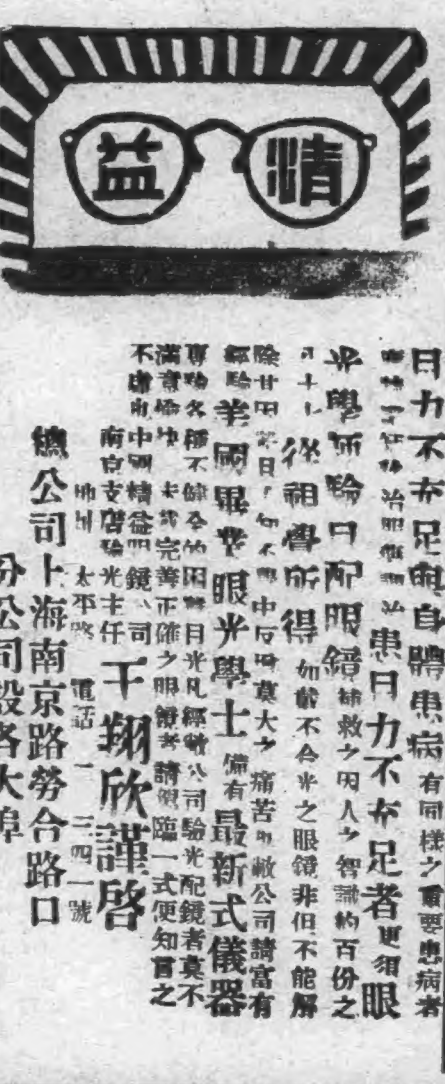 精益
目力不充足與自體患病有同樣之重要患病者
治患目力不充足者更須眼
光學所驗目配眼鏡補救之因人之智識約百份之
八十七從視覺所得如戴不合光之眼鏡非但不能解
除中反受莫大之痛苦敝公司請富有
經驗美國畢業眼光學士備有最新式儀器
專驗各種不健全的困難目光凡經敝公司驗光配鏡者莫不
滿意愉快未戴完善正確之眼鏡者請駕臨一式便知言之
不虛也中國精益眼鏡公司
南京支店驗光主任干翔欣謹啓
地址太平路電話二三四一號
總公司上海南京路勞合路口
分公司設各大埠